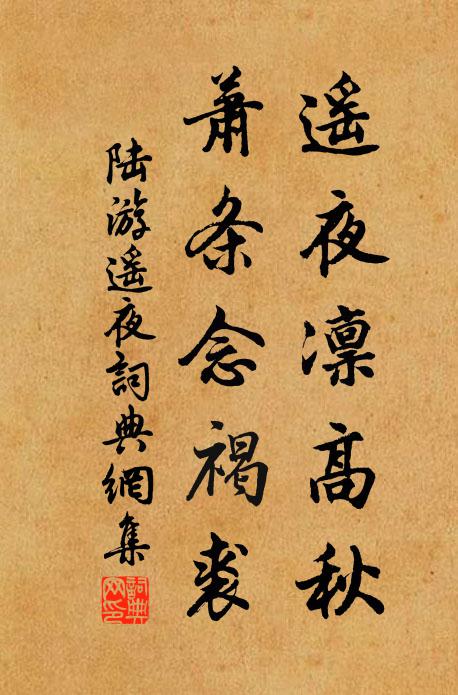 遥夜凛高秋
萧条念褐裘
陆游遥夜詞典網集
詞典网印